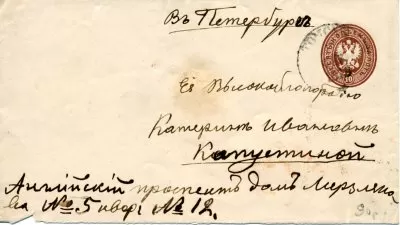 Въ Петербургъ
Её Высокоблагородію
Катеринѣ Ивановнѣ
Капустиной
Англійскій проспектъ домъ Мерзляко
ва № 5 квар. № 12.
10